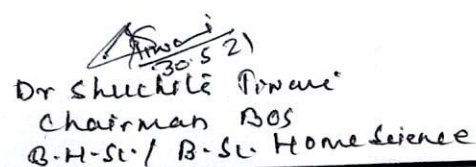 Tiwari
30.5.21
Dr Shuchita Tiwari
Chairman BOS
B.H.Sc. / B.Sc. Home Science